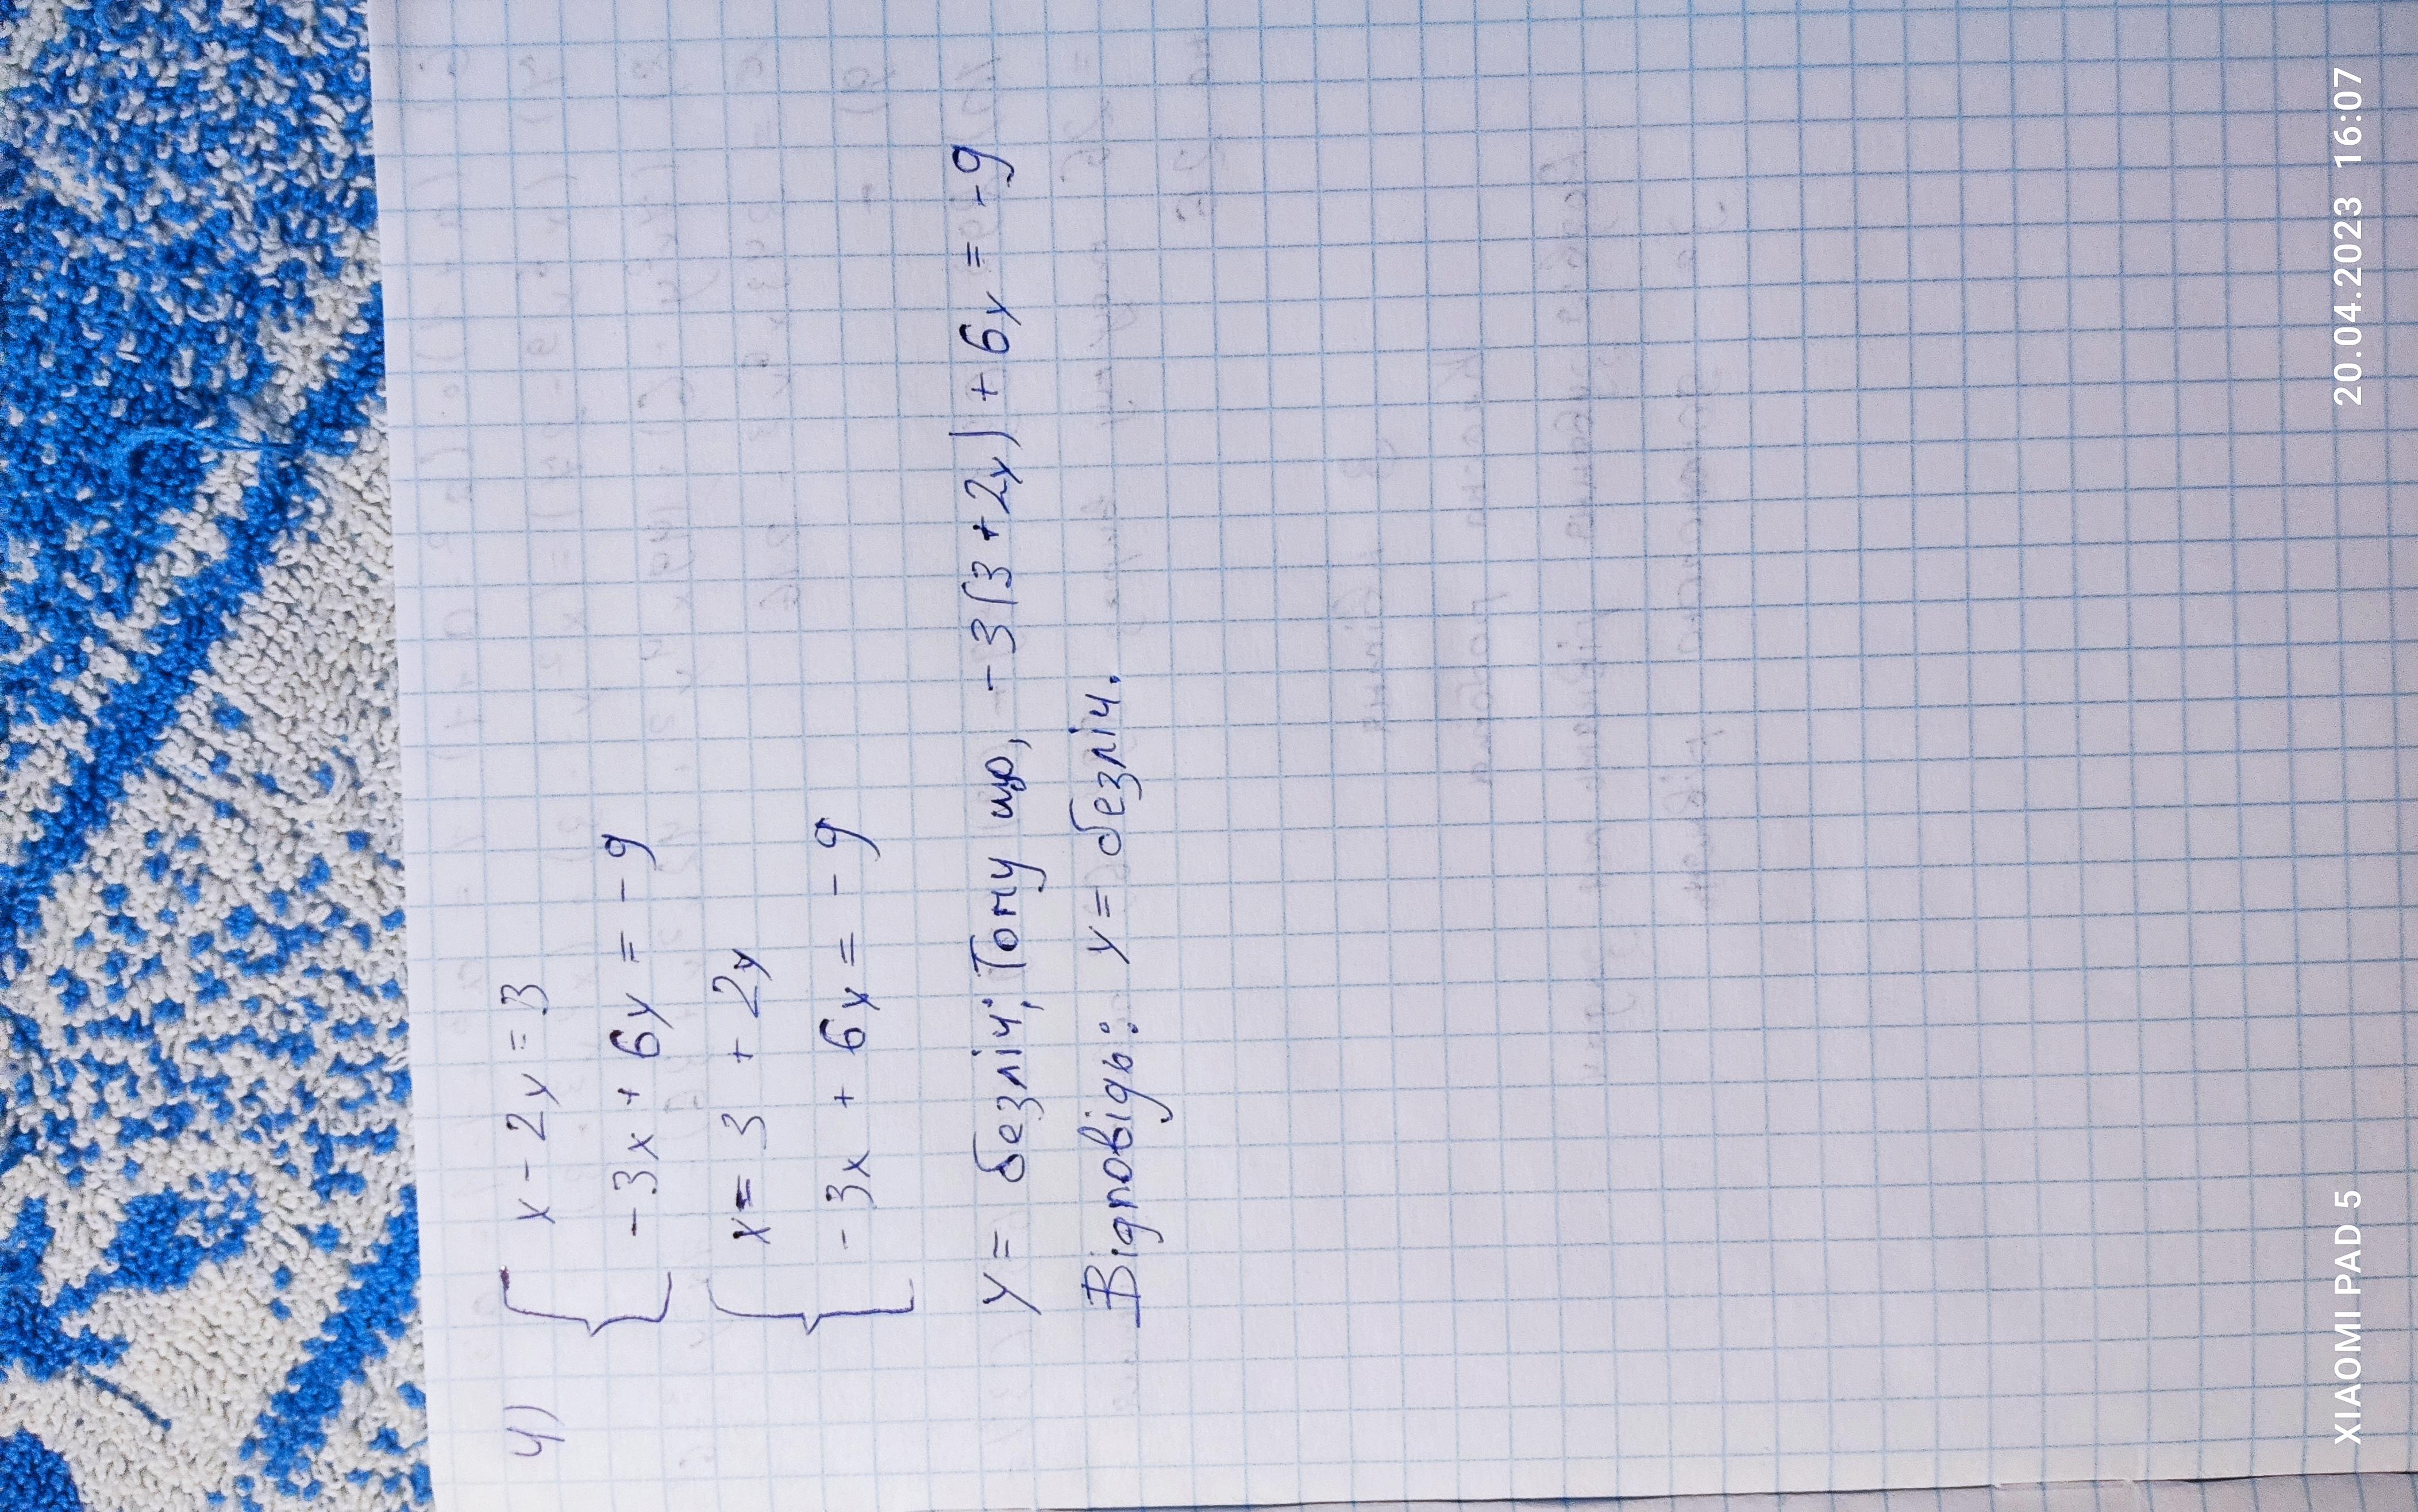 4) { x - 2y = 3
- 3x + 6y = - 9
{ x = 3 + 2y
- 3x + 6y = - 9
y = безліч; Тому що, - 3(3 + 2y) + 6y = - 9
Відповідь: y = безліч.
XIAOMI PAD 5 20.04.2023 16:07